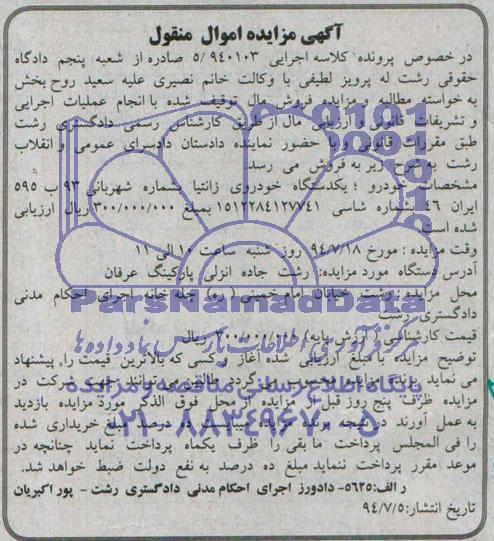 آگهی مزایده اموال منقول
در خصوص پرونده کلاسه اجرایی ۵/۹۴۰۱۰۳ صادره از شعبه پنجم دادگاه
حقوقی رشت له پرویز لطیفی با وکالت خانم نصیری علیه سعید روح بخش
به خواسته مطالبه و مزایده فروش مال توقیف شده با انجام عملیات اجرایی
و تشریفات قانونی و ارزیابی مال از طریق کارشناس رسمی دادگستری رشت
طبق مقررات قانونی و با حضور نماینده دادستان دادسرای عمومی و انقلاب
رشت به شرح زیر به فروش می رسد.
مشخصات خودرو ؛ یکدستگاه خودروی زانتیا بشماره شهربانی ۹۳ ب ۵۹۵
ایران ۴۶ بشماره شاسی ۱۵۱۲۲۸۴۱۲۷۷۴۱ بمبلغ ۳۰۰/۰۰۰/۰۰۰ ریال ارزیابی
شده است.
وقت مزایده : مورخ ۹۴/۷/۱۸ روز شنبه ساعت ۱۰ الی ۱۱
آدرس دستگاه مورد مزایده: رشت جاده انزلی پارکینگ عرفان
محل مزایده : رشت خیابان امام خمینی (ره) چله خانه اجرای احکام مدنی
دادگستری رشت
قیمت کارشناسی (ارزش پایه) ۳۰۰/۰۰۰/۰۰۰ ریال
توضیح مزایده از مبلغ ارزیابی شده آغاز و کسی که بالاترین قیمت را پیشنهاد
می نماید برنده مزایده محسوب می گردد. طالبین می توانند جهت شرکت در
مزایده ظرف پنج روز قبل از مزایده از محل فوق الذکر مورد مزایده بازدید
به عمل آورند در نتیجه برنده مزایده میبایست ده درصد مبلغ خریداری شده
را فی المجلس پرداخت ما بقی را ظرف یکماه پرداخت نماید چنانچه در
موعد مقرر پرداخت ننماید مبلغ ده درصد به نفع دولت ضبط خواهد شد.
ر الف:۵۶۲۵- دادورز اجرای احکام مدنی دادگستری رشت - پور اکبریان
تاریخ انتشار: ۹۴/۷/۵
ParsNamadData
مرکز فرآوری اطلاعات پارس نماد داده ها
پایگاه اطلاع رسانی مناقصه و مزایده
۰۲۱-۸۸۳۴۹۶۷۰-۵